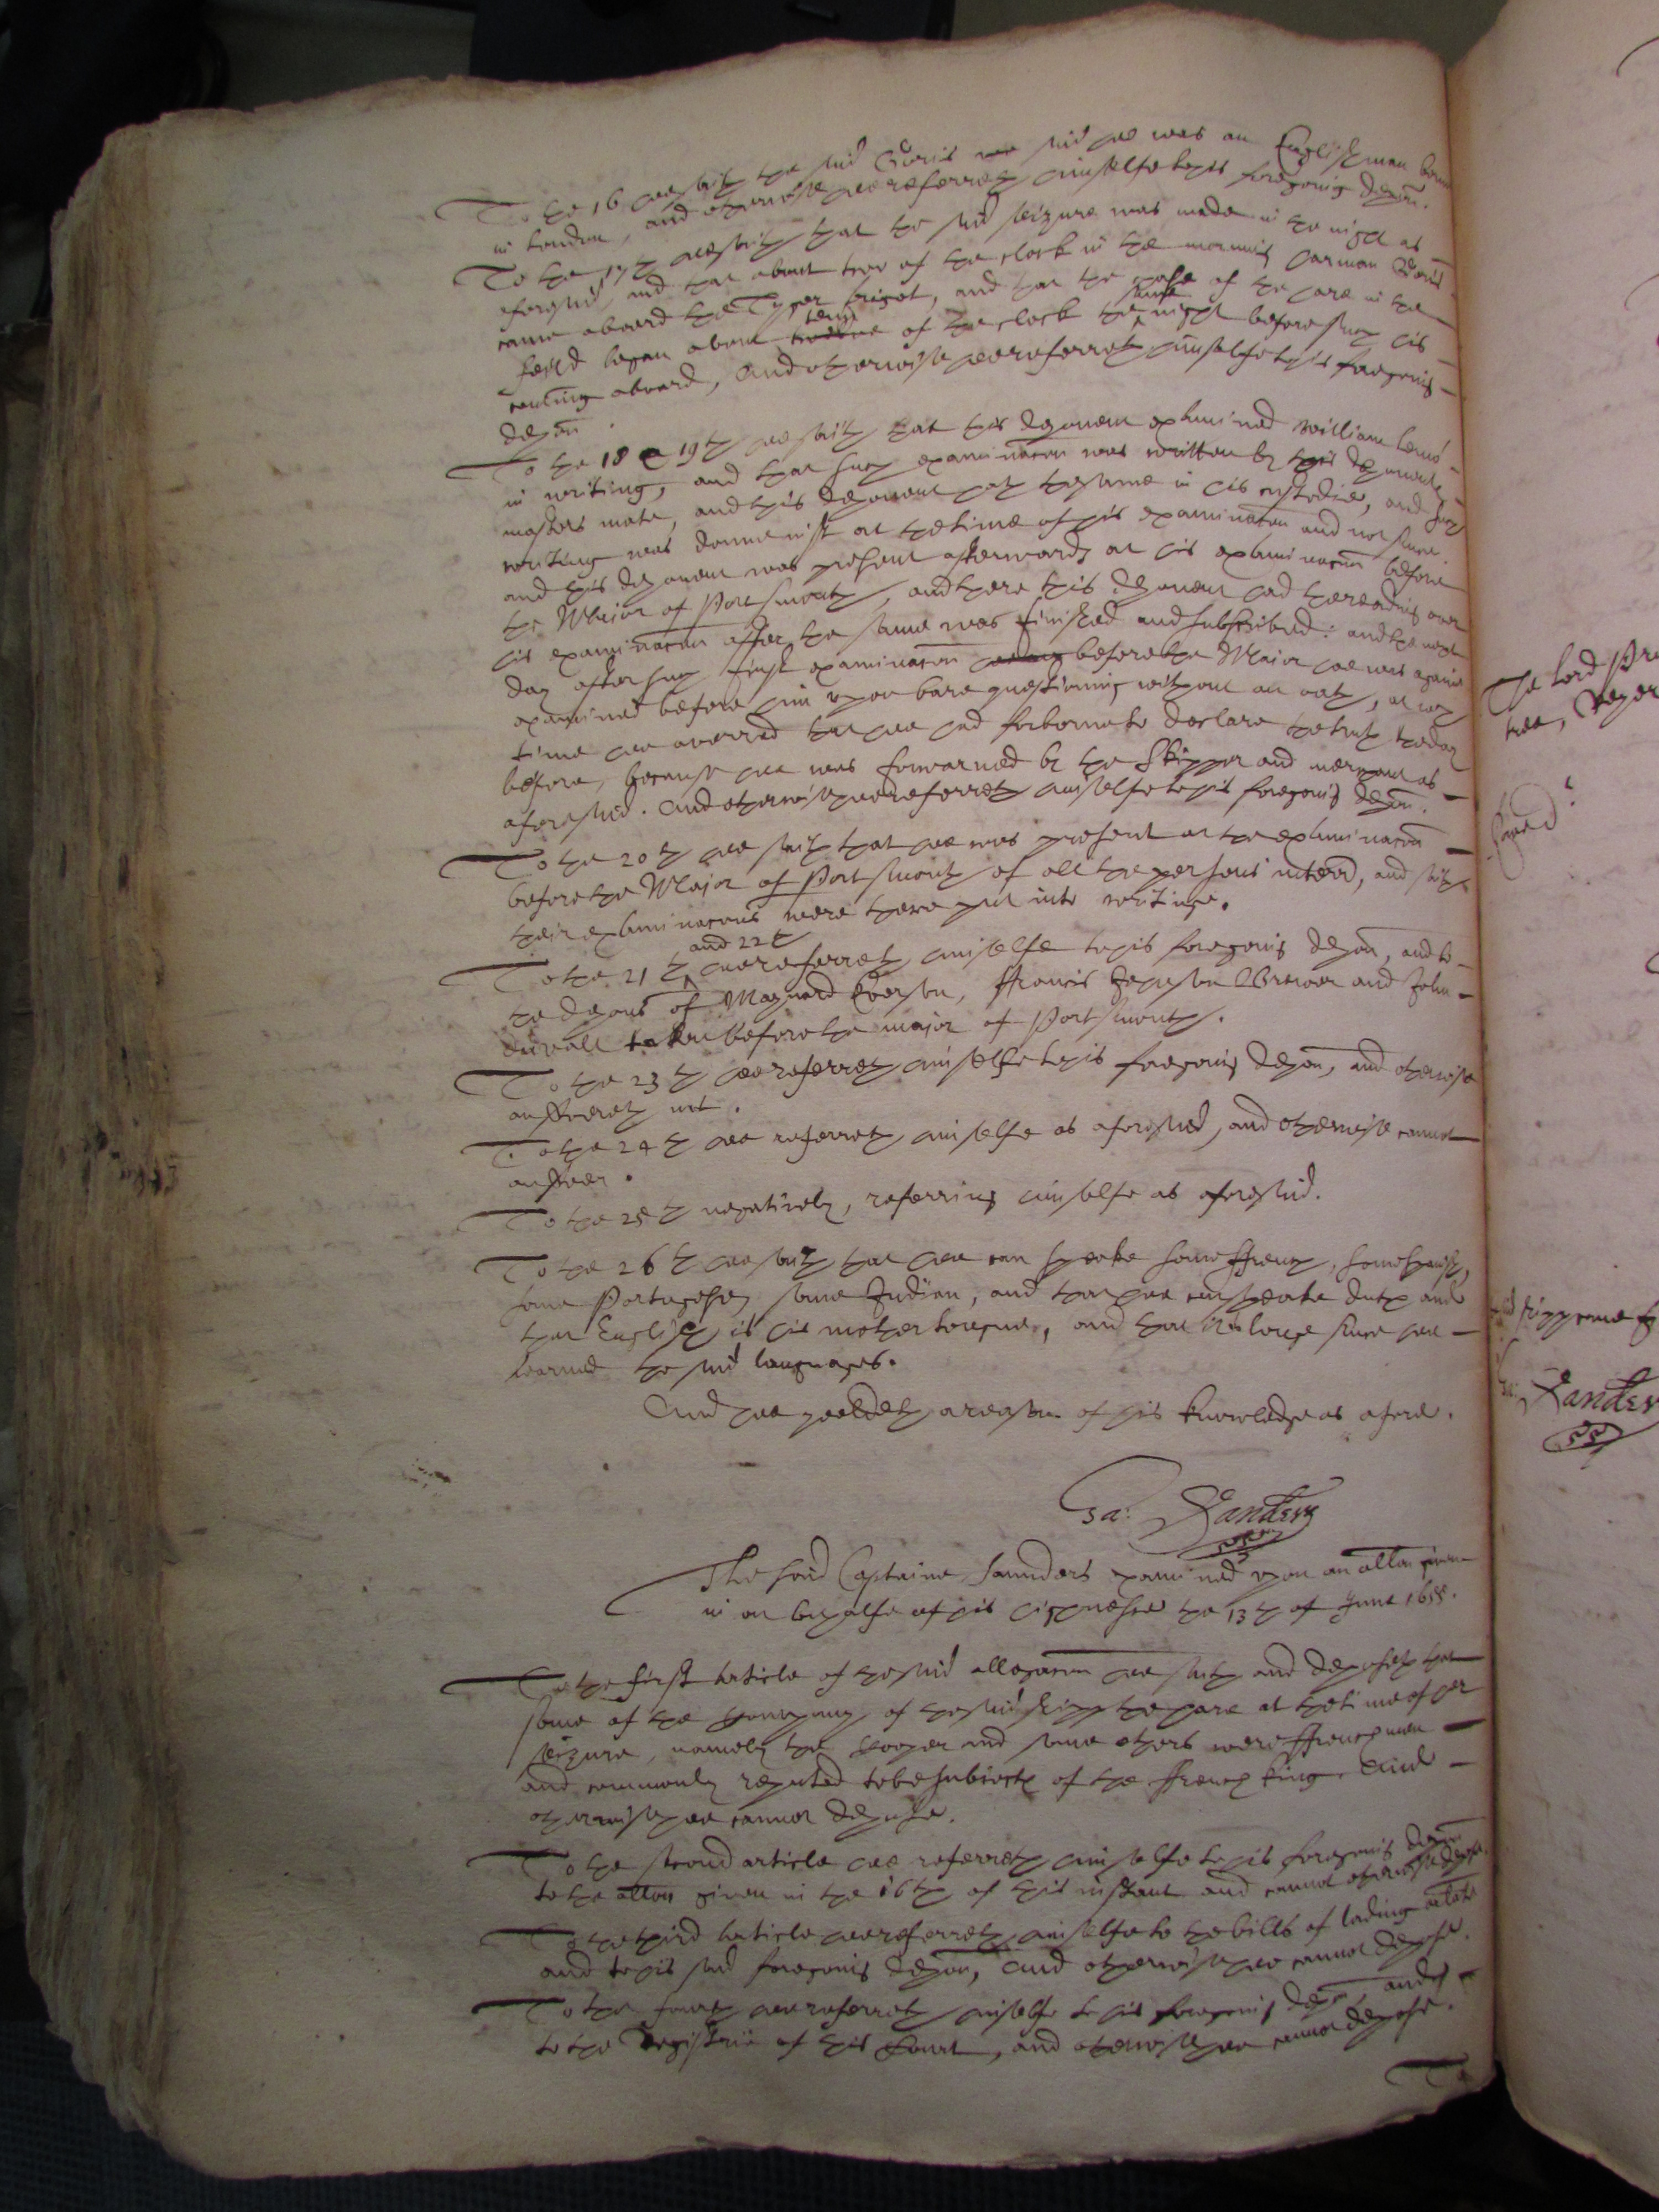 To the 16 hee saith the said Goris was said hee was an Englishman borne
in London, and otherwise hee referreth himselfe to his foregoing depon.
To the 17th hee saith that the said seizure was made in the night as
aforesaid, and that about two of the clock in the morning Harman Goris
came aboard the Tyger frigot, and that the chase of the hare in the
feild began about tenn of the clock the same night before such his
coming aboard, And otherwise hee referreth himselfe to his foregoing
depon
To the 18 e 19th hee saith that this deponent examined William
in writing, and that such examinacon was written by this deponents
masters mate, and this deponent hath the same in his custodie, and such
writing was donne at the time of his examinacon and not since
and this deponent was present afterwards at his examinacon before
the Maior of Portsmouth, and there this deponent had the reading over
his examinacon after the same was finished and subscribed: and the next
day after such first examinacon before the Maior hee was againe
examined before him upon bare questioning without an oath, at which
time hee averred that hee had forborne to declare the truth the day
before, because hee was forwarned by the Skipper and merchant as
aforesaid. And otherwise hee referreth himselfe to his foregoing depon.
To the 20th hee saith that hee was present at the examinacon
before the Maior of Portsmouth of all the persons interd, and saith
their examinacons were there put into writinge.
and 22th
To the 21th hee referreth himselfe to his foregoing depon, and to
the depons of Maynard Everson, ffrancis Johnson Brewer and John
Duvall taken before the major of Portsmouth.
To the 23th hee referreth himselfe to his foregoing depon, and otherwise
answereth not.
To the 24th hee referreth himselfe as aforesaid, and otherwise cannot
answer.
To the 25th negatively, referring himselfe as aforesaid.
To the 26th hee saith that hee can speake some ffrench, some spanish,
some Portughesy some Indian, and that hee can speake dutch and
that English is his mother tongue, and that is longe since hee
learned the said languages.
And hee yeeldeth a reason of his knowledge as afore.
Ga: Sanders
The said Captaine Saunders examined upon an allon given
in on behalfe of his highnesse the 13th of June 1655.
To the first article of the said allegacon hee saith and deposeth that
some of the company of the said shipp the hare at the time of her
seizure, namely the Cooper and some others were ffrenchmen
and commonly reputed to be subiects of the ffrench King. And
otherwise hee cannot depose.
To the second article hee referreth himselfe to his foregoing depon
to the allon given in the 16th of this instant and cannot otherwise depose.
To the third article hee referreth himselfe to the bills of lading
and to his said foregoing depon, And otherwise hee cannot depose.
To the fourth hee referreth himselfe to his foregoing depon and
to the Registrie of this Court, and otherwise hee cannot depose.
To
The lord Pro
shipp
Sanders